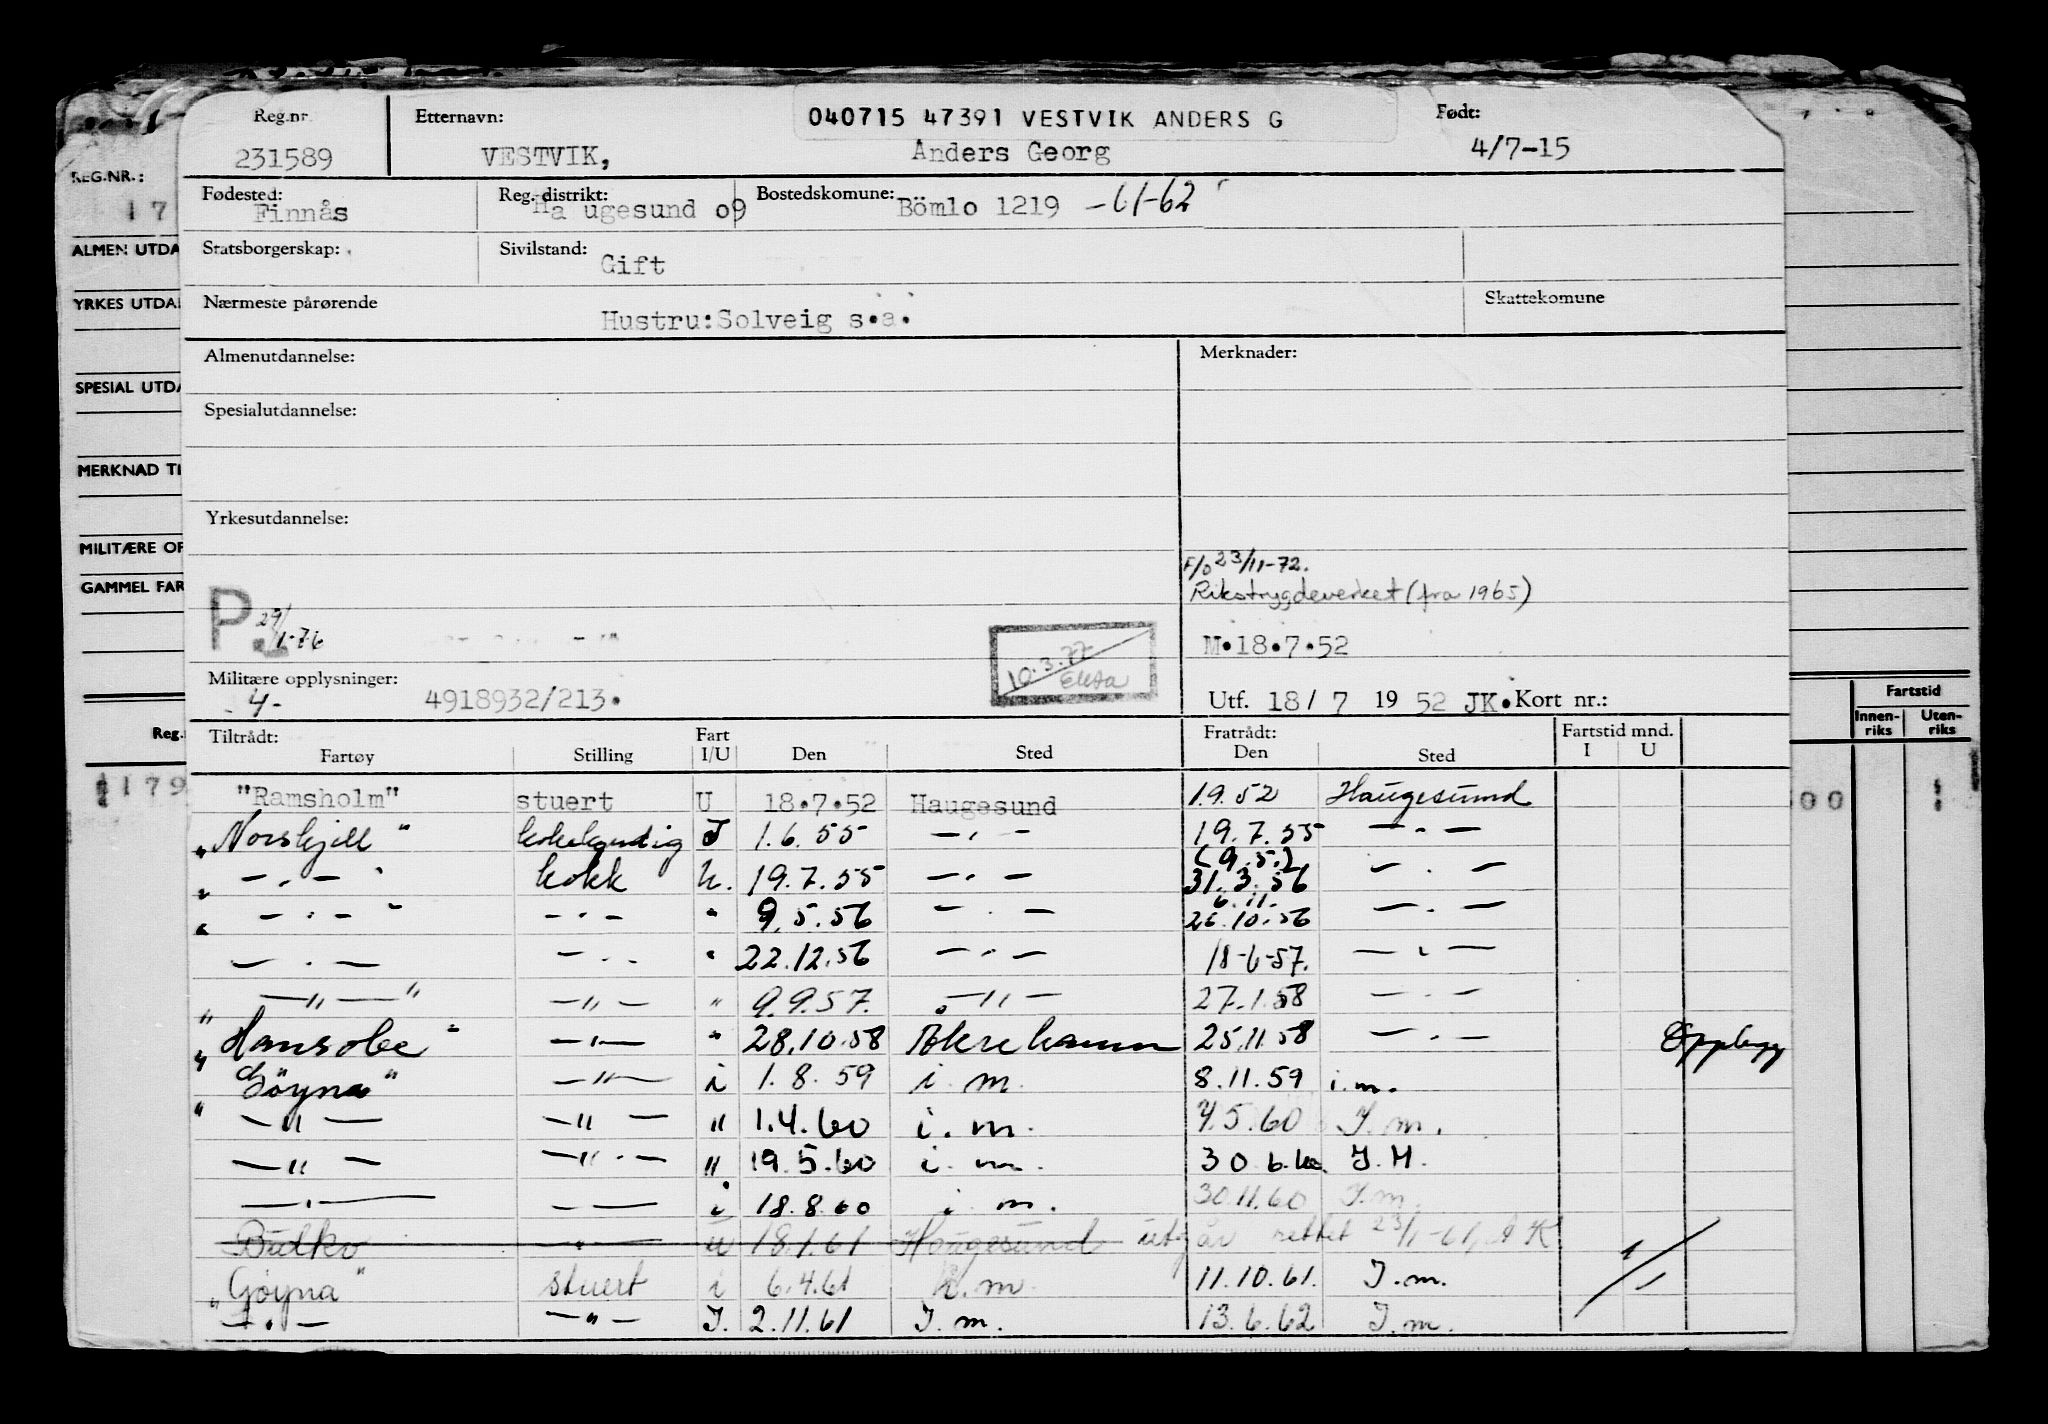 Reg.nr. Etternavn: 040715 47391 VESTVIK ANDERS G Født:
231589 VESTVIK, Anders Georg 4/7-15
REG.NR.:
Fødested: Finnås Reg. distrikt: Haugesund 09 Bostedskomune: Bömlo 1219 - 61-62
17
ALMEN UTDA
Statsborgerskap: Sivilstand: Gift
YRKES UTDA
Nærmeste pårørende Hustru: Solveig s.a. Skattekomune
Almenutdannelse: Merknader:
SPESIAL UTDA
Spesialutdannelse:
MERKNAD TI
Yrkesutdannelse:
MILITÆRE OP
F/o 23/11-72.
GAMMEL FAR
Rikstrygdeverket (fra 1965)
P. 29/1-76
M.18.7.52
10.3.77
Militære opplysninger: 4918932/213.
- 4 -
Utf. 18/ 7 19 52 JK. Kort nr.:
Fartstid
Innen-riks Uten-riks
Reg.
Tiltrådt: Fart Fratrådt: Fartstid mnd.
Fartøy Stilling I/U Den Sted Den Sted I U
179 00
"Ramsholm" stuert U 18.7.52 Haugesund 1.9.52 Haugesund
"Norskjell" kokekyndig I 1.6.55 — " — 19.7.55 — " —
(9.5.)
" — " — " kokk U. 19.7.55 — " — 31.3.56 — " —
6.11.
" — " — " — " — " 9.5.56 — " — 26.10.56 — " —
— " — — " — " 22.12.56 — " — 18-6-57. — " —
" — " — " — " — " 9.9.57. — " — 27.1.58 — " —
"Hansobe" — " — " 28.10.58 Akrehamn 25.11.58 — " — Opplegg
"Göyna" — " — i 1.8.59 i.m. 8.11.59 i.m.
" — " — — " — " 1.4.60 i.m. 7.5.60 I.m.
— " — — " — " 19.5.60 i.m. 30.6.60. I.M.
— " — — " — i 18.8.60 i m. 30.11.60 I.m.
Bulko — " — u 18.1.61 Haugesund utgår rettet 23/1-61, A K
"Göyna" stuert i 6.4.61 i.m. 11.10.61. I.m.
— " — — " — I. 2.11.61 I.m. 13.6.62 I.m.